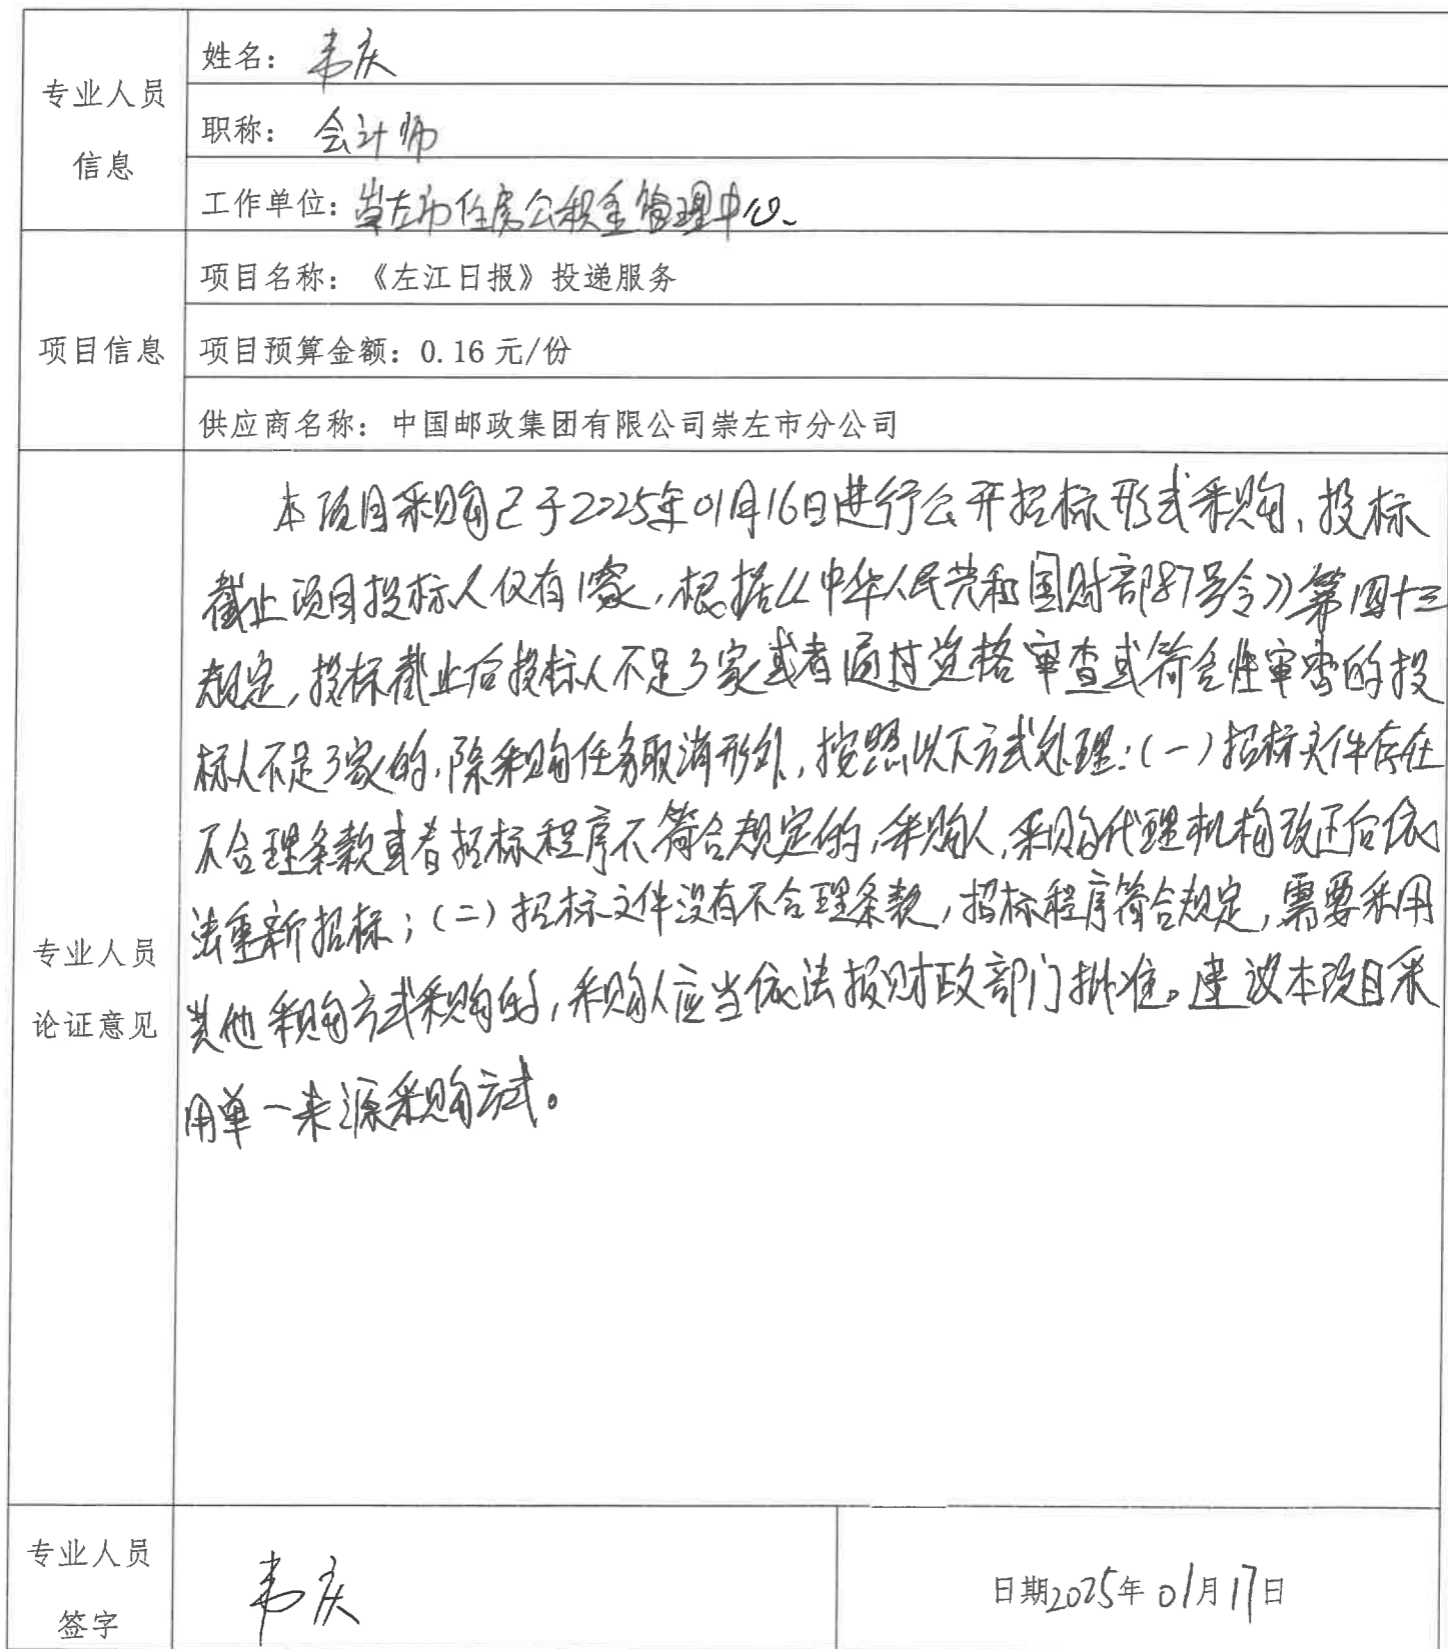 专业人员
信息
姓名：韦庆
职称：会计师
工作单位：崇左市住房公积金管理中心
项目信息
项目名称：《左江日报》投递服务
项目预算金额：0.16 元/份
供应商名称：中国邮政集团有限公司崇左市分公司
专业人员
论证意见
本项目采购已于2025年01月16日进行公开招标形式采购，投标
截止项目投标人仅有1家，根据《中华人民共和国财部87号令》第四十三
规定，投标截止后投标人不足3家或者通过资格审查或符合性审查的投
标人不足3家的，除采购任务取消形外，按照以下方式处理：（一）招标文件存在
不合理条款或者招标程序不符合规定的，采购人，采购代理机构改正后依
法重新招标；（二）招标文件没有不合理条款，招标程序符合规定，需要采用
其他采购方式采购的，采购人应当依法报财政部门批准。建议本项目采
用单一来源采购方式。
专业人员
签字
韦庆
日期2025年01月17日